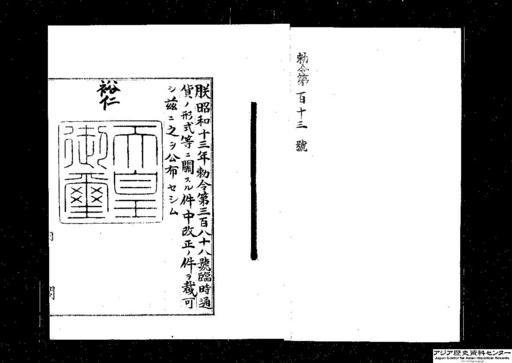 勅令第百十三號
朕昭和十三年勅令第三百八十八號臨時通
貨ノ形式等ニ關スル件中改正ノ件ヲ裁可
シ茲ニ之ヲ公布セシム
裕仁
天皇
御璽
アジア歴史資料センター
Japan Center for Asian Historical Records